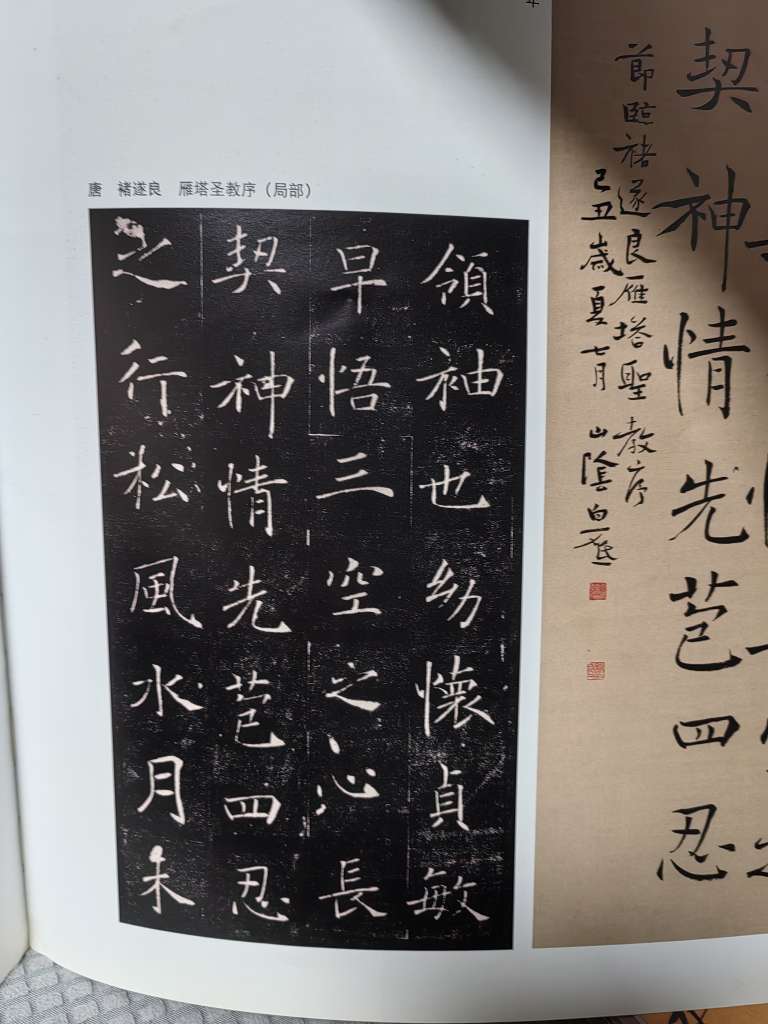 唐 褚遂良 雁塔圣教序（局部）
領袖也幼懷貞敏
早悟三空之心長
契神情先苞四忍
之行松風水月未
契神情先苞四忍
節臨褚遂良雁塔聖教序
己丑歲夏七月 山陰白砥